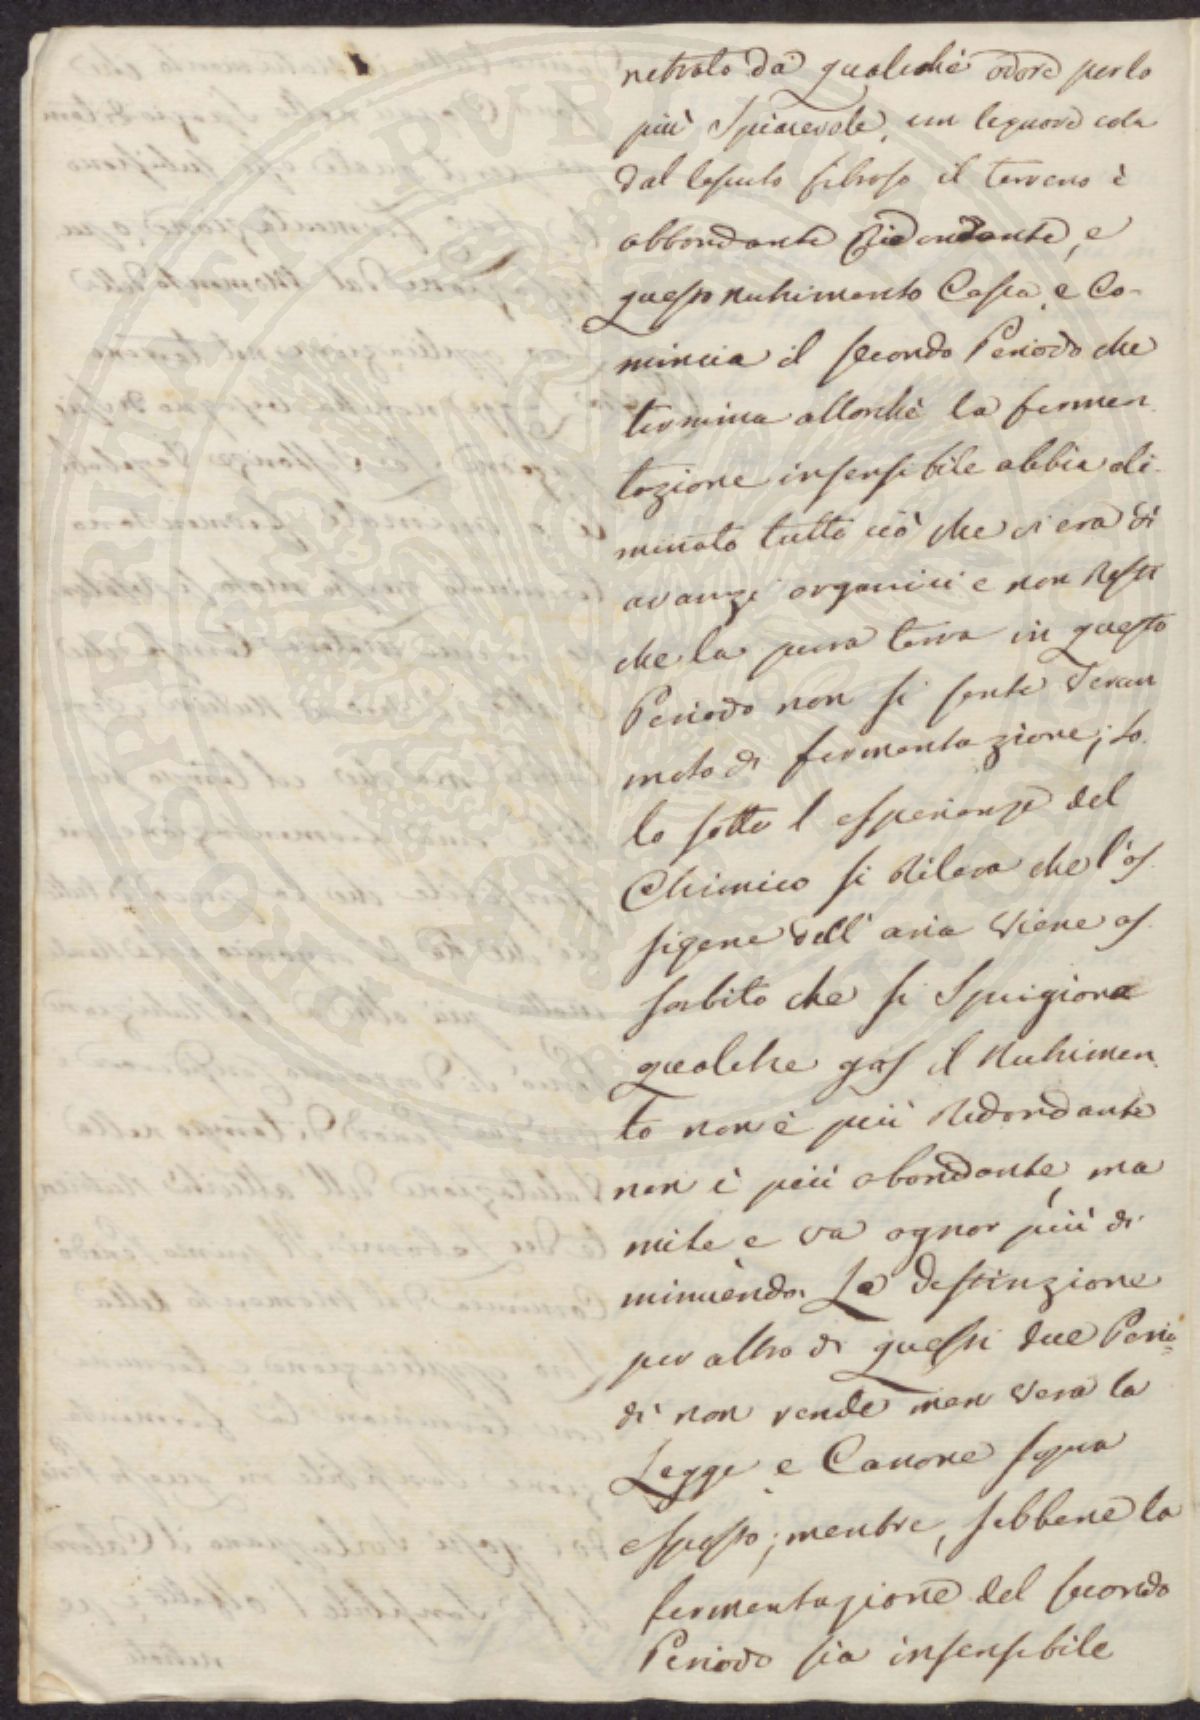 netrato da qualche odore per lo
più Spiacevole, un liquore cola
dal tessuto fibroso il terreno è
abbondante Ridondante, e
questo nutrimento Cessa, e Co-
mincia il secondo Periodo che
termina allorchè la fermen
tazione insensibile abbia eli-
minato tutto ciò che vi era di
avanzi organici e non Resti
che la pura terra in questo
Periodo non si sente verun
moto di fermentazione; so
lo sotto l esperienze del
Chimico si Rileva che l'os
sigene dell' aria viene as
sorbito che si Sprigiona
qualche gas il Nutrimen
to non è più Ridondante
non è più abondante, ma
mite e va ognor più di
minuendo. La Distinzione
per altro di questi due Perio=
di non rende men vera la
Legge e Canone sopra
esposto; mentre, sebbene la
fermentazione del secondo
Periodo sia insensibile